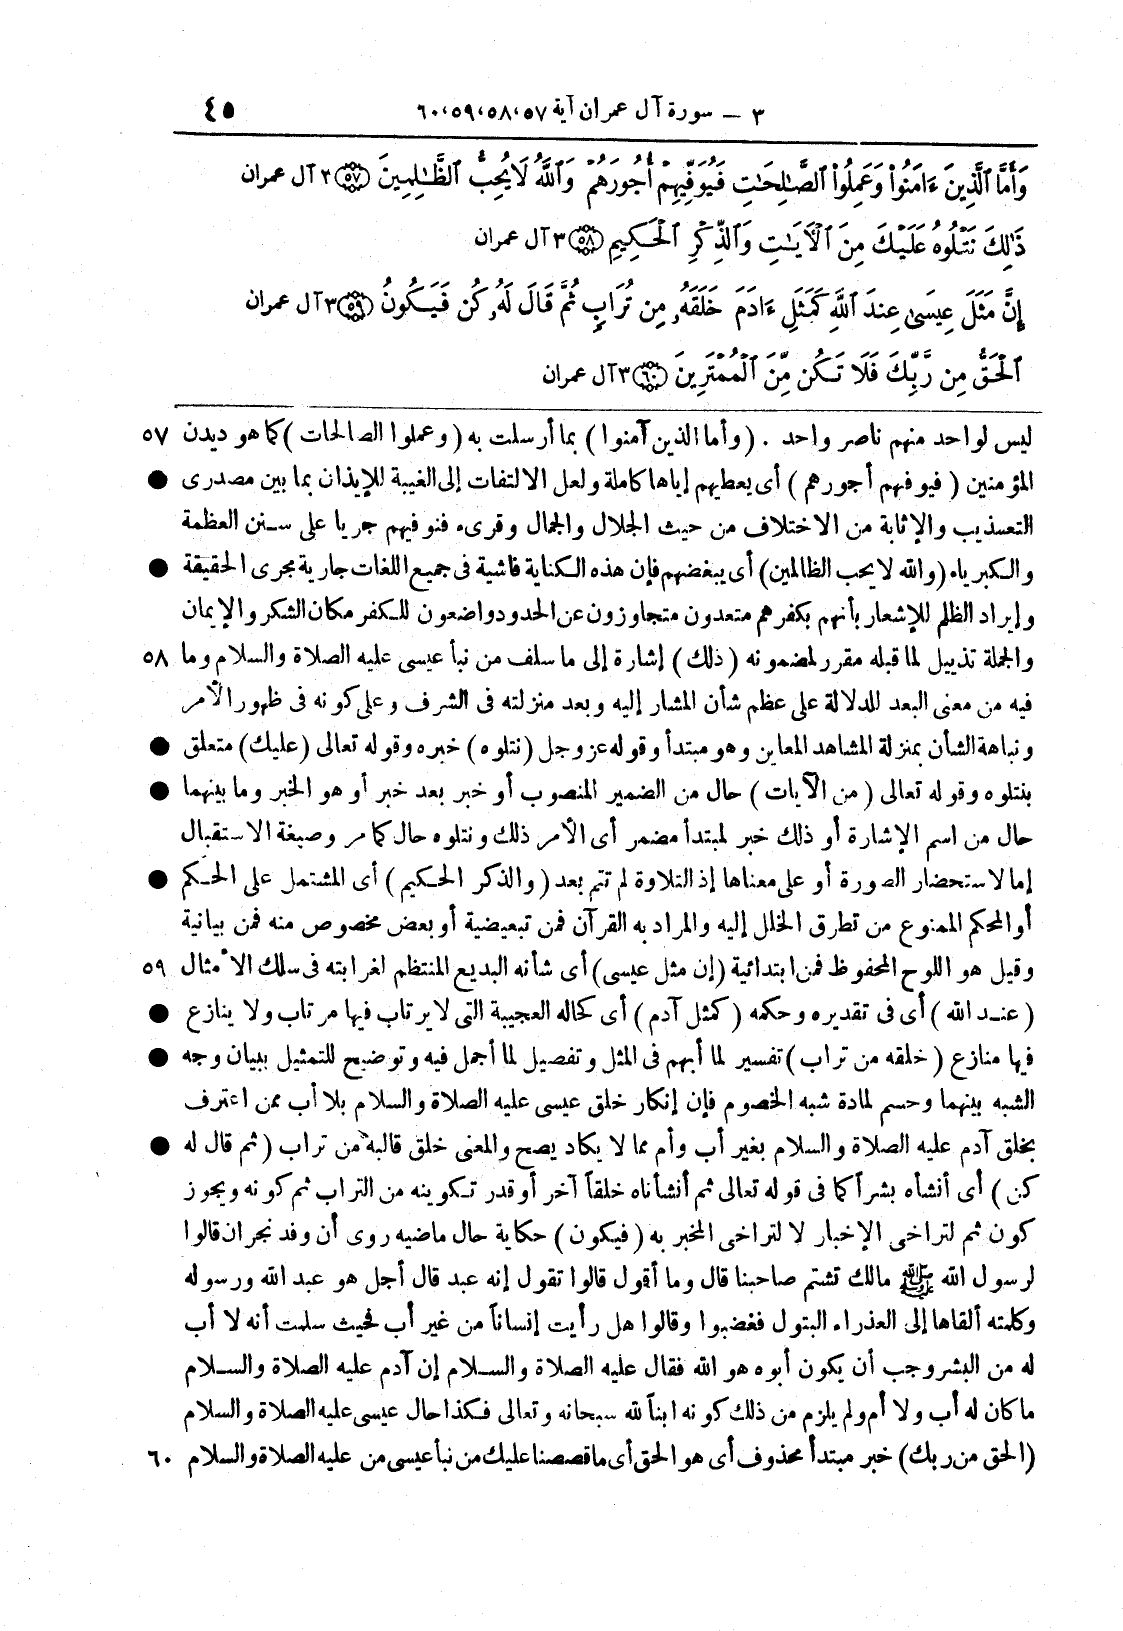 ٣ – سورة آل عمران آية ٥٧، ٥٨، ٥٩، ٦٠ ٤٥
وَأَمَّا ٱلَّذِينَ ءَامَنُوا۟ وَعَمِلُوا۟ ٱلصَّـٰلِحَـٰتِ فَيُوَفِّيهِمْ أُجُورَهُمْ وَٱللَّهُ لَا يُحِبُّ ٱلظَّـٰلِمِينَ ٥٧ ٣ آل عمران
ذَٰلِكَ نَتْلُوهُ عَلَيْكَ مِنَ ٱلْآيَـٰتِ وَٱلذِّكْرِ ٱلْحَكِيمِ ٥٨ ٣ آل عمران
إِنَّ مَثَلَ عِيسَىٰ عِندَ ٱللَّهِ كَمَثَلِ ءَادَمَ خَلَقَهُۥ مِن تُرَابٍ ثُمَّ قَالَ لَهُۥ كُن فَيَكُونُ ٥٩ ٣ آل عمران
ٱلْحَقُّ مِن رَّبِّكَ فَلَا تَكُن مِّنَ ٱلْمُمْتَرِينَ ٦٠ ٣ آل عمران
ليس لواحد منهم ناصر واحد . (وأما الذين آمنوا) بما أرسلت به (وعملوا الصالحات) كما هو ديدن ٥٧
المؤمنين (فيوفيهم أجورهم) أى يعطيهم إياها كاملة ولعل الالتفات إلى الغيبة للإيذان بما بين مصدرى ●
التعذيب والإثابة من الاختلاف من حيث الجلال والجمال وقرىء فنوفيهم جريا على سنن العظمة
والكبرياء (والله لا يحب الظالمين) أى يبغضهم فإن هذه الكناية فاشية فى جميع اللغات جارية مجرى الحقيقة ●
وإيراد الظلم للإشعار بأنهم بكفرهم متعدون متجاوزون عن الحدود واضعون للكفر مكان الشكر والإيمان
والجملة تذييل لما قبله مقرر لمضمونه (ذلك) إشارة إلى ما سلف من نبأ عيسى عليه الصلاة والسلام وما ٥٨
فيه من معنى البعد للدلالة على عظم شأن المشار إليه وبعد منزلته فى الشرف وعلى كونه فى ظهور الأمر
ونباهة الشأن بمنزلة المشاهد المعاين وهو مبتدأ وقوله عز وجل (نتلوه) خبره وقوله تعالى (عليك) متعلق ●
بنتلوه وقوله تعالى (من الآيات) حال من الضمير المنصوب أو خبر بعد خبر أو هو الخبر وما بينهما ●
حال من اسم الإشارة أو ذلك خبر لمبتدأ مضمر أى الأمر ذلك ونتلوه حال كما مر وصيغة الاستقبال
إما لاستحضار الصورة أو على معناها إذ التلاوة لم تتم بعد (والذكر الحكيم) أى المشتمل على الحكم ●
أو المحكم الممنوع من تطرق الخلل إليه والمراد به القرآن فمن تبعيضية أو بعض مخصوص منه فمن بيانية
وقيل هو اللوح المحفوظ فمن ابتدائية (إن مثل عيسى) أى شأنه البديع المنتظم لغرابته فى سلك الأمثال ٥٩
(عند الله) أى فى تقديره وحكمه (كمثل آدم) أى كحاله العجيبة التى لا يرتاب فيها مرتاب ولا ينازع ●
فيها منازع (خلقه من تراب) تفسير لما أبهم فى المثل وتفصيل لما أجمل فيه وتوضيح للتمثيل ببيان وجه ●
الشبه بينهما وحسم لمادة شبه الخصوم فإن إنكار خلق عيسى عليه الصلاة والسلام بلا أب ممن اعترف
بخلق آدم عليه الصلاة والسلام بغير أب وأم مما لا يكاد يصح والمعنى خلق قالبه من تراب (ثم قال له ●
كن) أى أنشأه بشراً كما فى قوله تعالى ثم أنشأناه خلقاً آخر أو قدر تكوينه من التراب ثم كونه ويجوز
كون ثم لتراخى الإخبار لا لتراخى المخبر به (فيكون) حكاية حال ماضيه روى أن وفد نجران قالوا
لرسول الله ﷺ مالك تشتم صاحبنا قال وما أقول قالوا تقول إنه عبد قال أجل هو عبد الله ورسوله
وكلمته ألقاها إلى العذراء البتول فغضبوا وقالوا هل رأيت إنساناً من غير أب فحيث سلمت أنه لا أب
له من البشر وجب أن يكون أبوه هو الله فقال عليه الصلاة والسلام إن آدم عليه الصلاة والسلام
ما كان له أب ولا أم ولم يلزم من ذلك كونه ابناً لله سبحانه وتعالى فكذا حال عيسى عليه الصلاة والسلام
(الحق من ربك) خبر مبتدأ محذوف أى هو الحق أى ما قصصنا عليك من نبأ عيسى من عليه الصلاة والسلام ٦٠